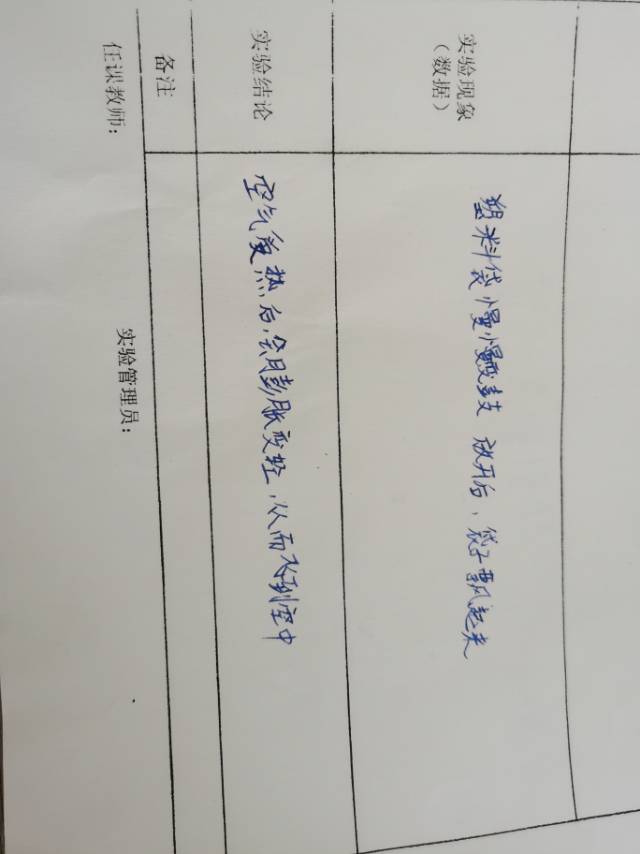 实验现象
（数据）
塑料袋慢慢变鼓 放开后，袋子飘起来
实验结论
空气受热后，会膨胀变轻，从而飞到空中
备注
任课教师：
实验管理员：